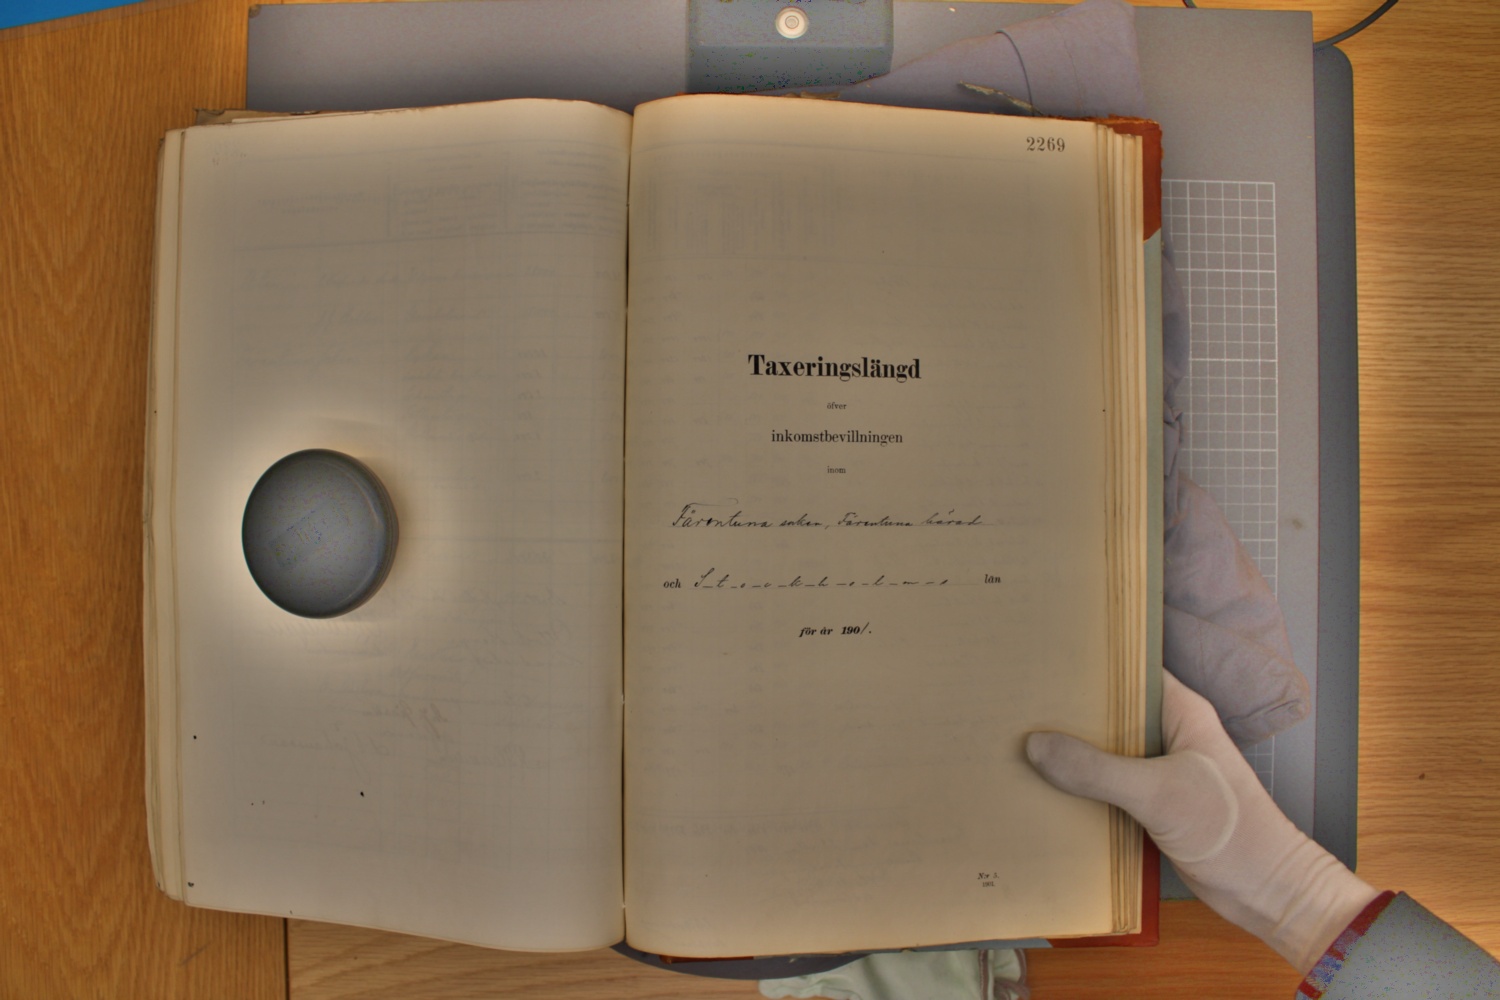 2269
Taxeringslängd
öfver
inkomstbevillningen
inom
Färentuna socken, Färentuna härad
och S_t_o_c_k_h_o_l_m_s län
för år 1901.
N:r 3.
1901.